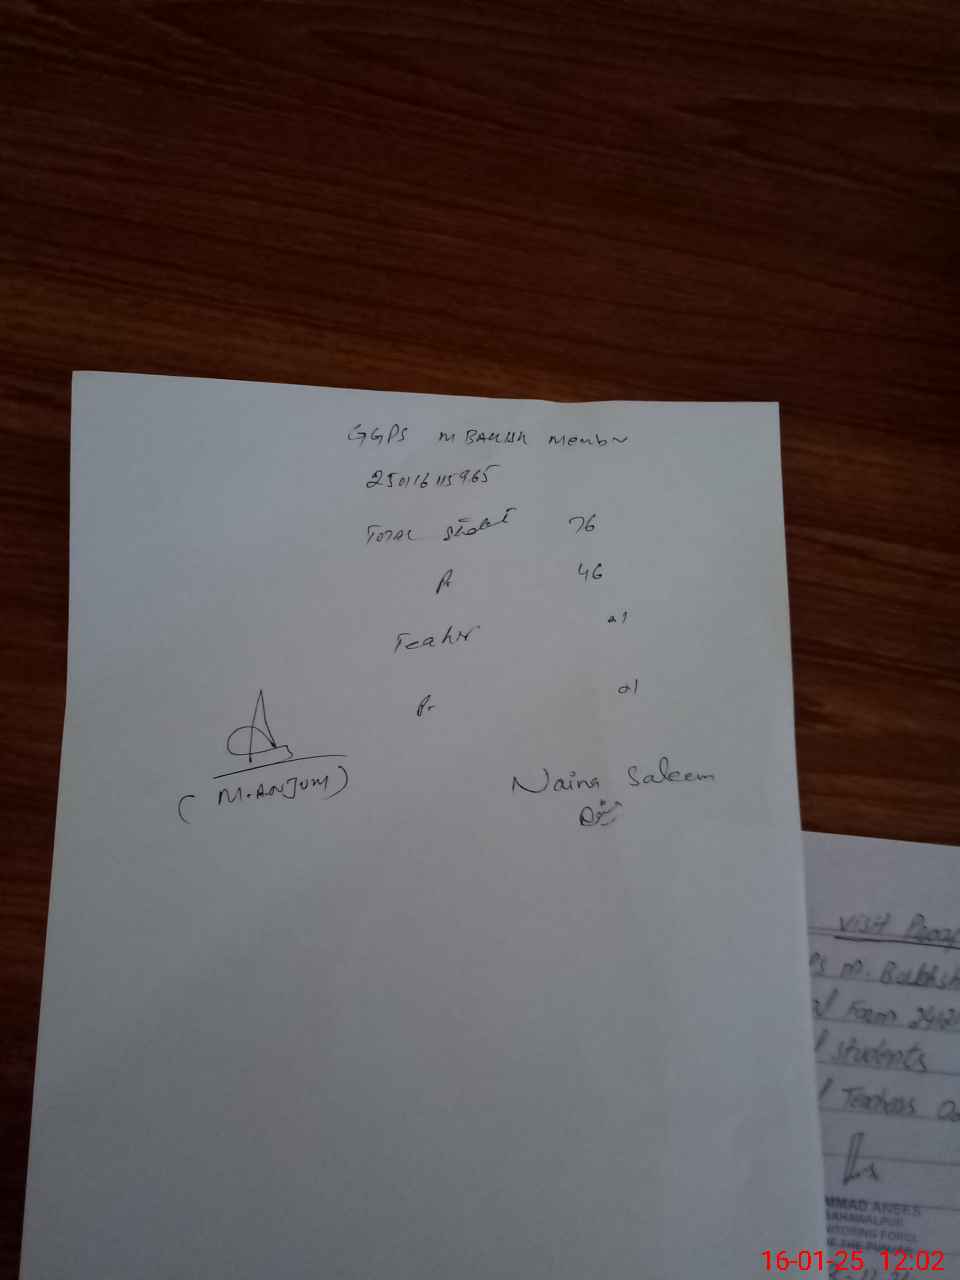 GGPS M BAKHSH Membr
250116115965
TOTAL Studet 76
Pr 46
Teahr 01
Pr 01
(M.ANJUM)
Naina Saleem
VISIT Proof
PS M. Bakhsh
Form
Students
Teachers
MMAD ANEES
BAHAWALPUR
NITORING FORCE
OF THE PUNJAB
16-01-25 12:02